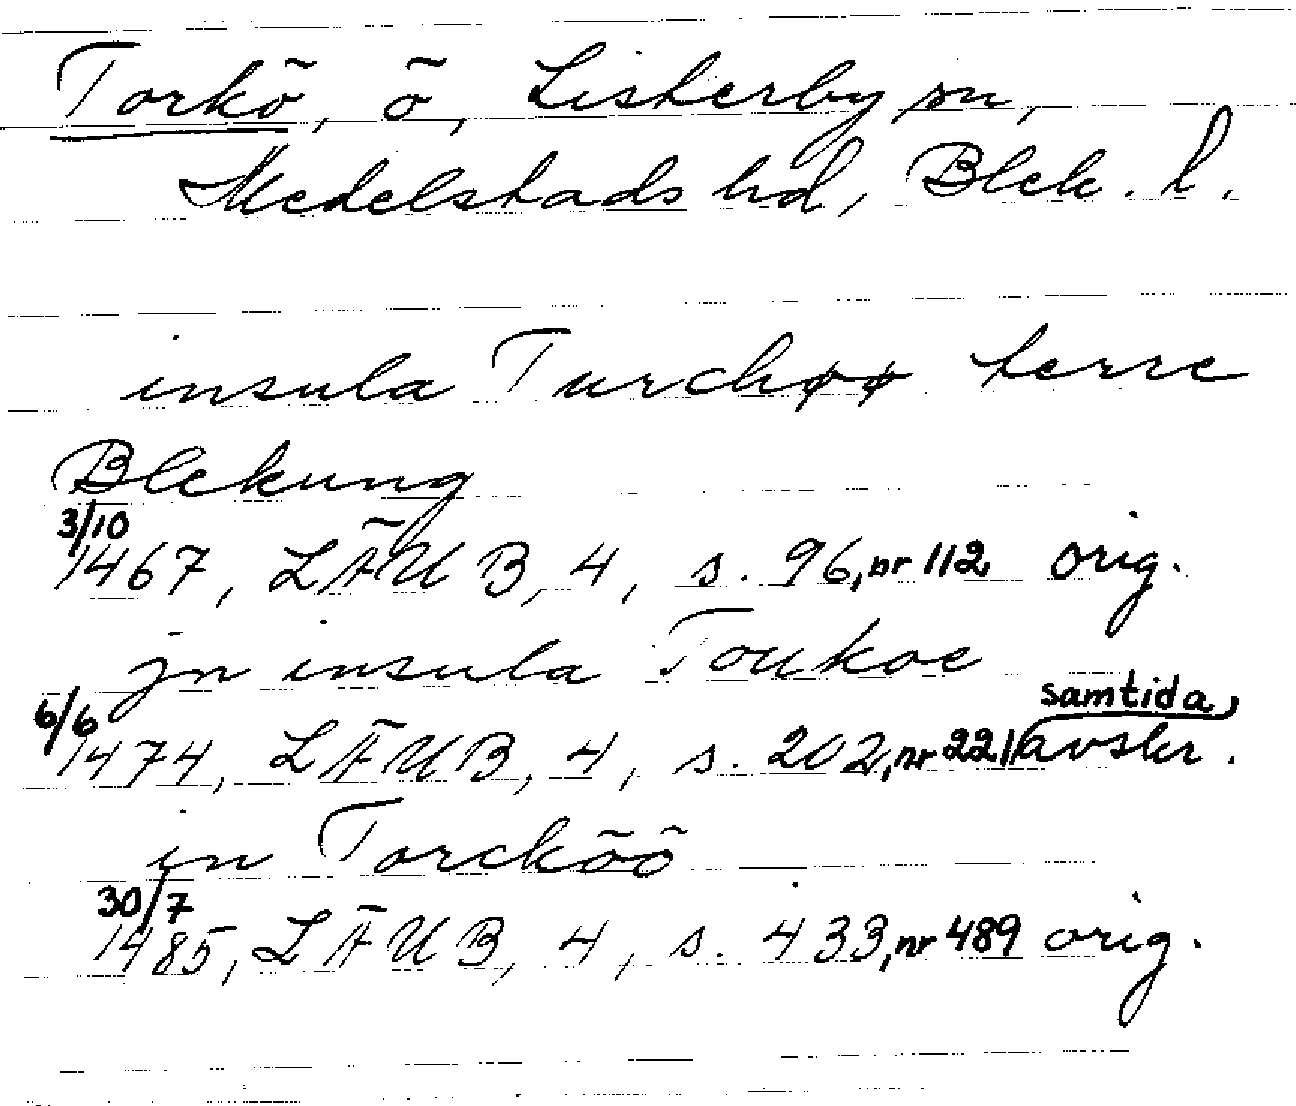 Torkö, ö, Listerby sn,
Medelstads hd, Blek. l.
insula Turchøø terre
Blekung
3/10
1467, LÄUB, 4, s. 96, nr 112 orig.
jn insula Toukoe
6/6
1474, LÄUB, 4, s. 202, nr 221 samtida avskr.
in Torcköö
30/7
1485, LÄUB, 4, s. 433, nr 489 orig.